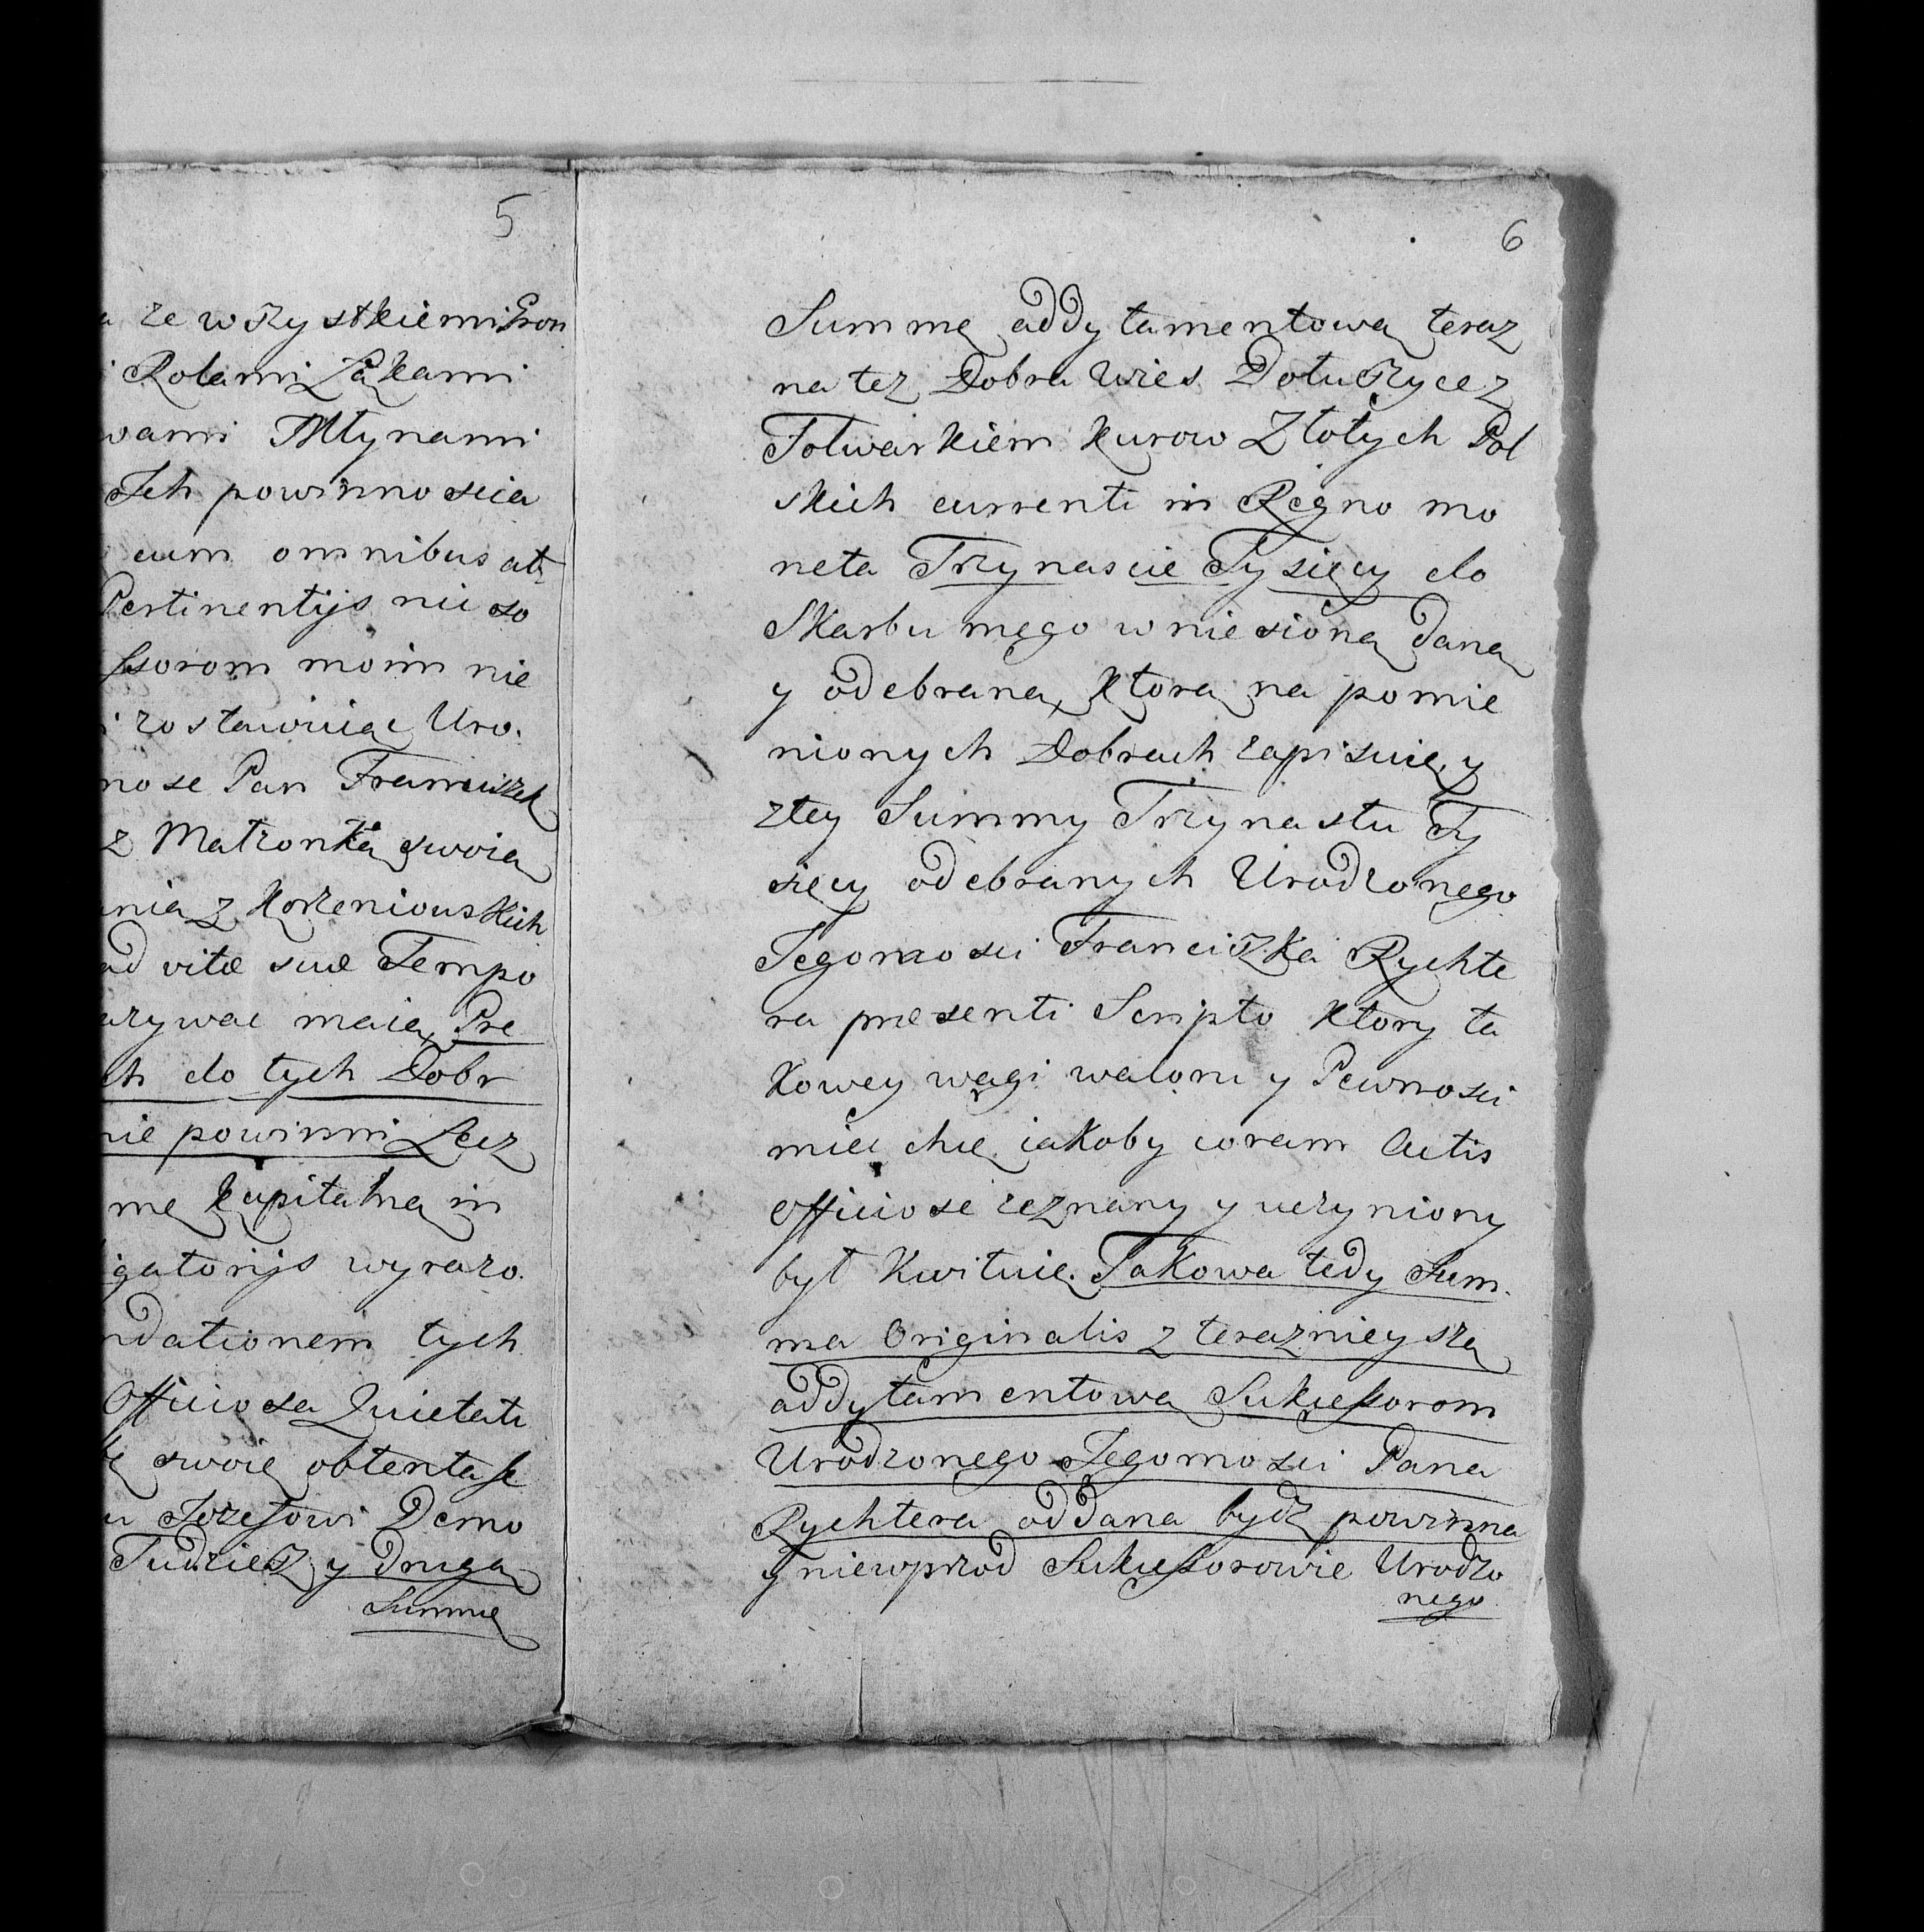 5
ze wszystkiemi Gron
Rolami Łąkami
wami Młynami
Ich powinnoscia
cum omnibus att
Pertinentijs nie so
ssorom moim nie
zostawuiąc Uro.
nosc Pan Franciszek
z Małzonką swoią
ania z Korzeniowskich
ad vitæ suæ Tempo
uzywac maią, Pre
ch do tych Dobr
nie powinni Lecz
mę kapitalną in
gatorijs wyrazo.
ndationem tych
Officiosa Quietati
swoię obtenta se
Jozefowi Demo
Tudziesz y Drugą
Summę
6
Summę addytamentową teraz
na tez Dobra Wies Dołuszyce z
Folwarkiem Kurow Złotych Pol
skich currenti in Regno mo
neta Trzynascie Tysięcy do
Skarbu mego wniesioną daną
y odebraną, ktorą na pomie
nionych Dobrach zapisuię, y
ztey Summy Trzynastu Ty
sięcy odebranych Urodzonego
Jegomosci Franciszka Rychte
ra præsenti Scripto ktory ta
kowey wagi waloru y Pewnosci
miec chcę iakoby coram Actis
officiose zeznany y uczyniony
był kwituię. Takowa tedy Sum.
ma Originalis z teraznieyszą
addytamentową Sukcessorom
Urodzonego Jegomosci Pana
Rychtera oddana bydz powinna
y niewprzod Sukcessorowie Urodzo
nego